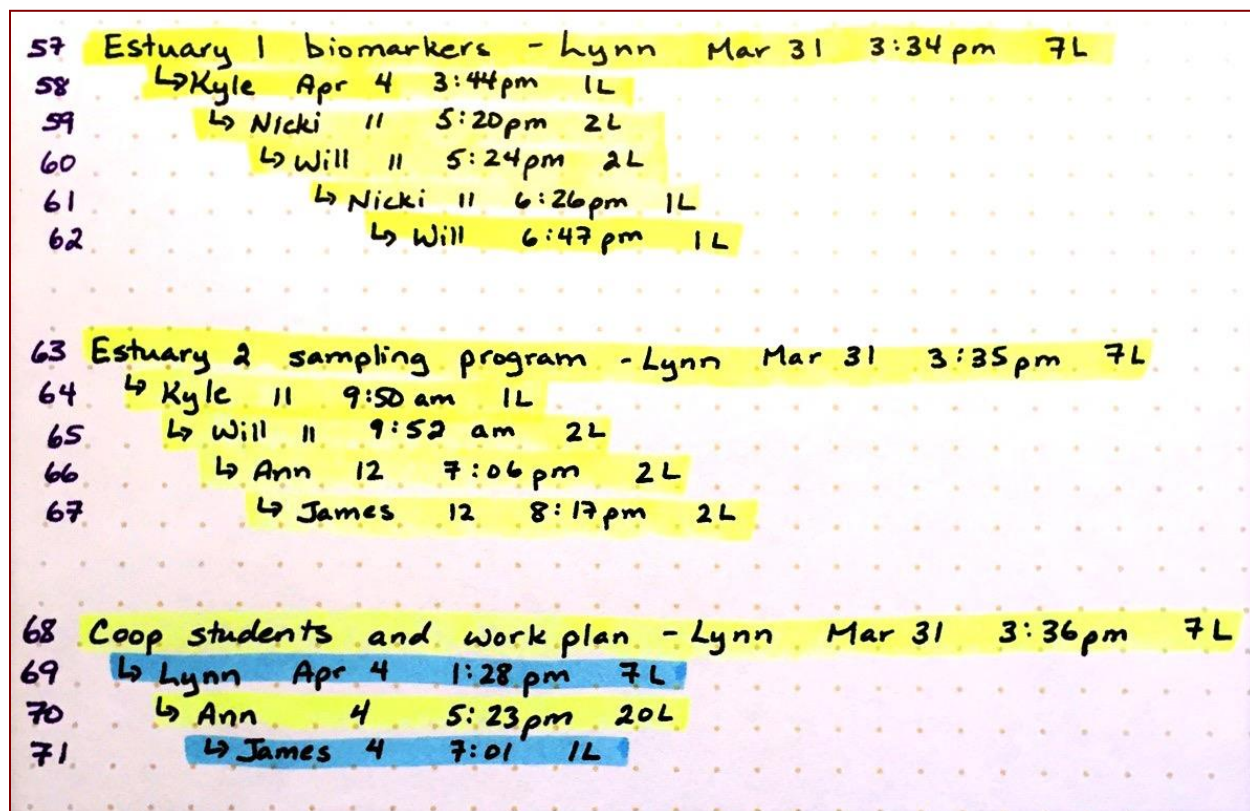 57 Estuary 1 biomarkers - Lynn Mar 31 3:34pm 7L
58 ↳Kyle Apr 4 3:44pm 1L
59 ↳ Nicki 11 5:20pm 2L
60 ↳ Will 11 5:24pm 2L
61 ↳ Nicki 11 6:26pm 1L
62 ↳ Will 6:47pm 1L
63 Estuary 2 sampling program - Lynn Mar 31 3:35pm 7L
64 ↳ Kyle 11 9:50 am 1L
65 ↳ Will 11 9:52 am 2L
66 ↳ Ann 12 7:06pm 2L
67 ↳ James 12 8:17pm 2L
68 Coop students and work plan - Lynn Mar 31 3:36pm 7L
69 ↳ Lynn Apr 4 1:28pm 7L
70 ↳ Ann 4 5:23pm 20L
71 ↳ James 4 7:01 1L